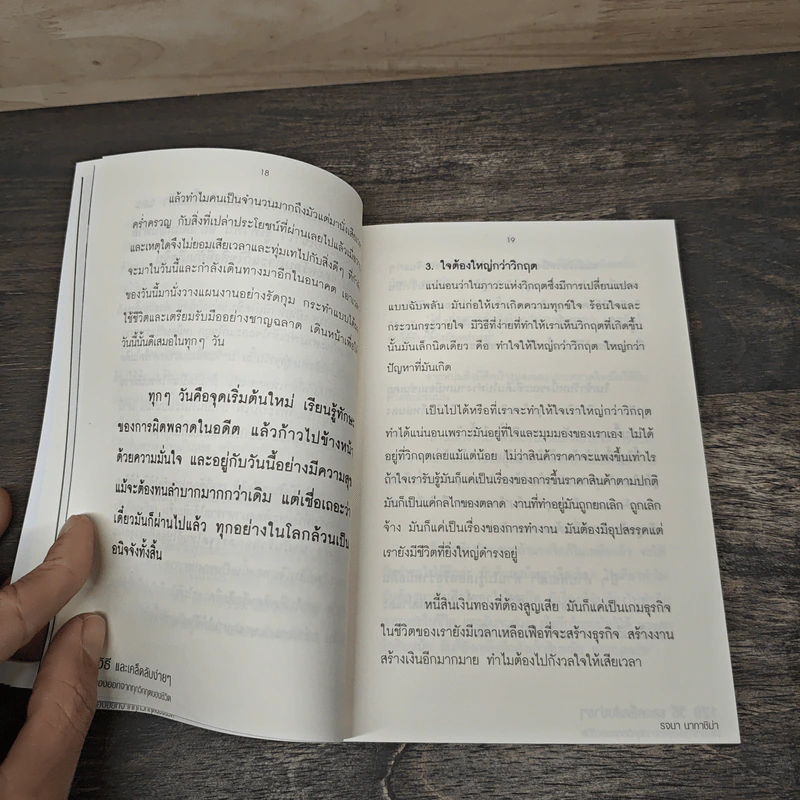 18
แล้วทำไมคนเป็นจำนวนมากถึงมัวแต่มานั่งเสีย
คร่ำครวญ กับสิ่งที่เปล่าประโยชน์ที่ผ่านเลยไปแล้ว
และเหตุใดจึงไม่ยอมเสียเวลาและทุ่มเทไปกับสิ่งดีๆ
จะมาในวันนี้และกำลังเดินทางมาอีกในอนาคต
ของวันนี้มานั่งวางแผนงานอย่างรัดกุม กระทำแบบ
ใช้ชีวิตและเตรียมรับมืออย่างชาญฉลาด เดินหน้า
วันนี้นั้นดีเสมอในทุกๆ วัน
ทุกๆ วันคือจุดเริ่มต้นใหม่ เรียนรู้ทักษะ
ของการผิดพลาดในอดีต แล้วก้าวไปข้างหน้า
ด้วยความมั่นใจ และอยู่กับวันนี้อย่างมีความสุข
แม้จะต้องทนลำบากมากกว่าเดิม แต่เชื่อเถอะว่า
เดี๋ยวมันก็ผ่านไปแล้ว ทุกอย่างในโลกล้วนเป็น
อนิจจังทั้งสิ้น
วิธี และเคล็ดลับง่ายๆ
19
3. ใจต้องใหญ่กว่าวิกฤต
แน่นอนว่าในภาวะแห่งวิกฤตซึ่งมีการเปลี่ยนแปลง
แบบฉับพลัน มันก่อให้เราเกิดความทุกข์ใจ ร้อนใจและ
กระวนกระวายใจ มีวิธีที่ง่ายที่ทำให้เราเห็นวิกฤตที่เกิดขึ้น
นั้นมันเล็กนิดเดียว คือ ทำใจให้ใหญ่กว่าวิกฤต ใหญ่กว่า
ปัญหาที่มันเกิด
เป็นไปได้หรือที่เราจะทำให้ใจเราใหญ่กว่าวิกฤต
ทำได้แน่นอนเพราะมันอยู่ที่ใจและมุมมองของเราเอง ไม่ได้
อยู่ที่วิกฤตเลยแม้แต่น้อย ไม่ว่าสินค้าราคาจะแพงขึ้นเท่าไร
ถ้าใจเรารับรู้มันก็แค่เป็นเรื่องของการขึ้นราคาสินค้าตามปกติ
มันก็แค่เป็นกลไกของตลาด งานที่ทำอยู่มันถูกยกเลิก ถูกเลิก
จ้าง มันก็แค่เป็นเรื่องของการทำงาน มันต้องมีอุปสรรคแต่
เรายังมีชีวิตที่ยิ่งใหญ่ดำรงอยู่
หนี้สินเงินทองที่ต้องสูญเสีย มันก็แค่เป็นเกมธุรกิจ
ในชีวิตของเรายังมีเวลาเหลือเฟือที่จะสร้างธุรกิจ สร้างงาน
สร้างเงินอีกมากมาย ทำไมต้องไปกังวลใจให้เสียเวลา
รจนา นากาชิม่า